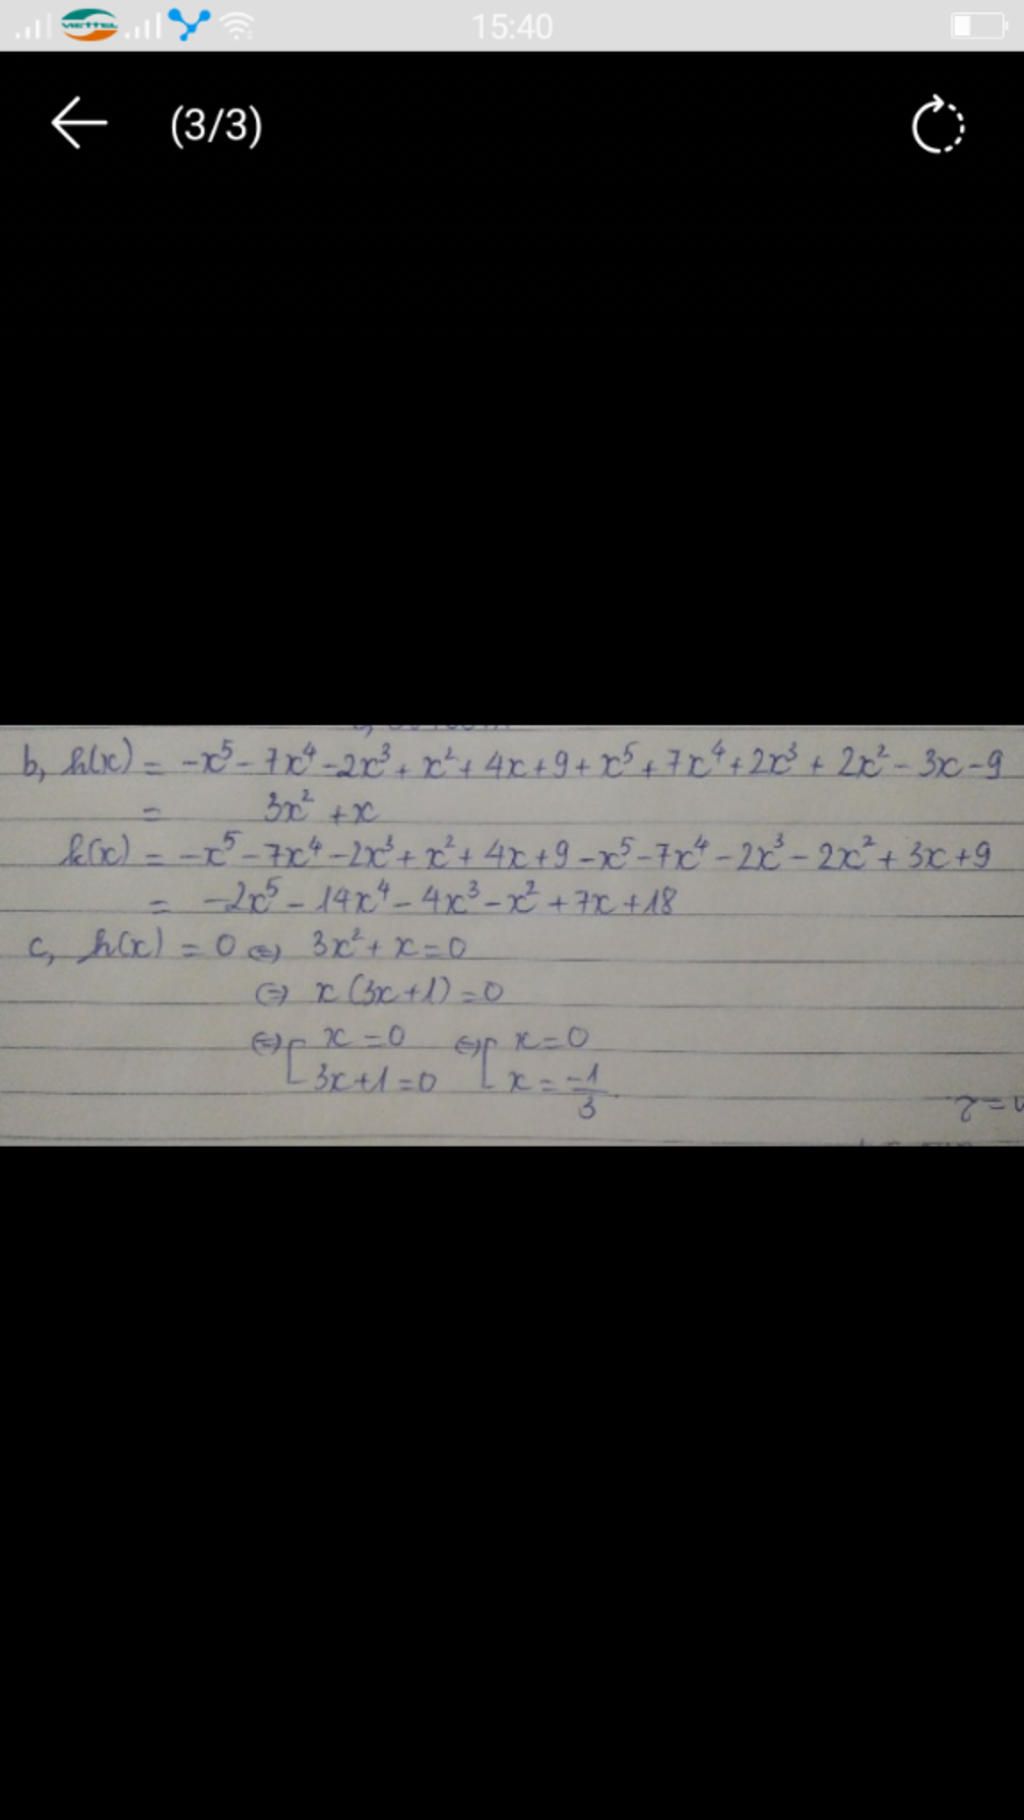 VIETTEL 15:40
(3/3)
b, h(x) = -x⁵ - 7x⁴ - 2x³ + x² + 4x + 9 + x⁵ + 7x⁴ + 2x³ + 2x² - 3x - 9
= 3x² + x
k(x) = -x⁵ - 7x⁴ - 2x³ + x² + 4x + 9 - x⁵ - 7x⁴ - 2x³ - 2x² + 3x + 9
= -2x⁵ - 14x⁴ - 4x³ - x² + 7x + 18
c, h(x) = 0 ⇔ 3x² + x = 0
⇔ x(3x + 1) = 0
⇔ [ x = 0 ⇔ [ x = 0
3x + 1 = 0 x = -1/3